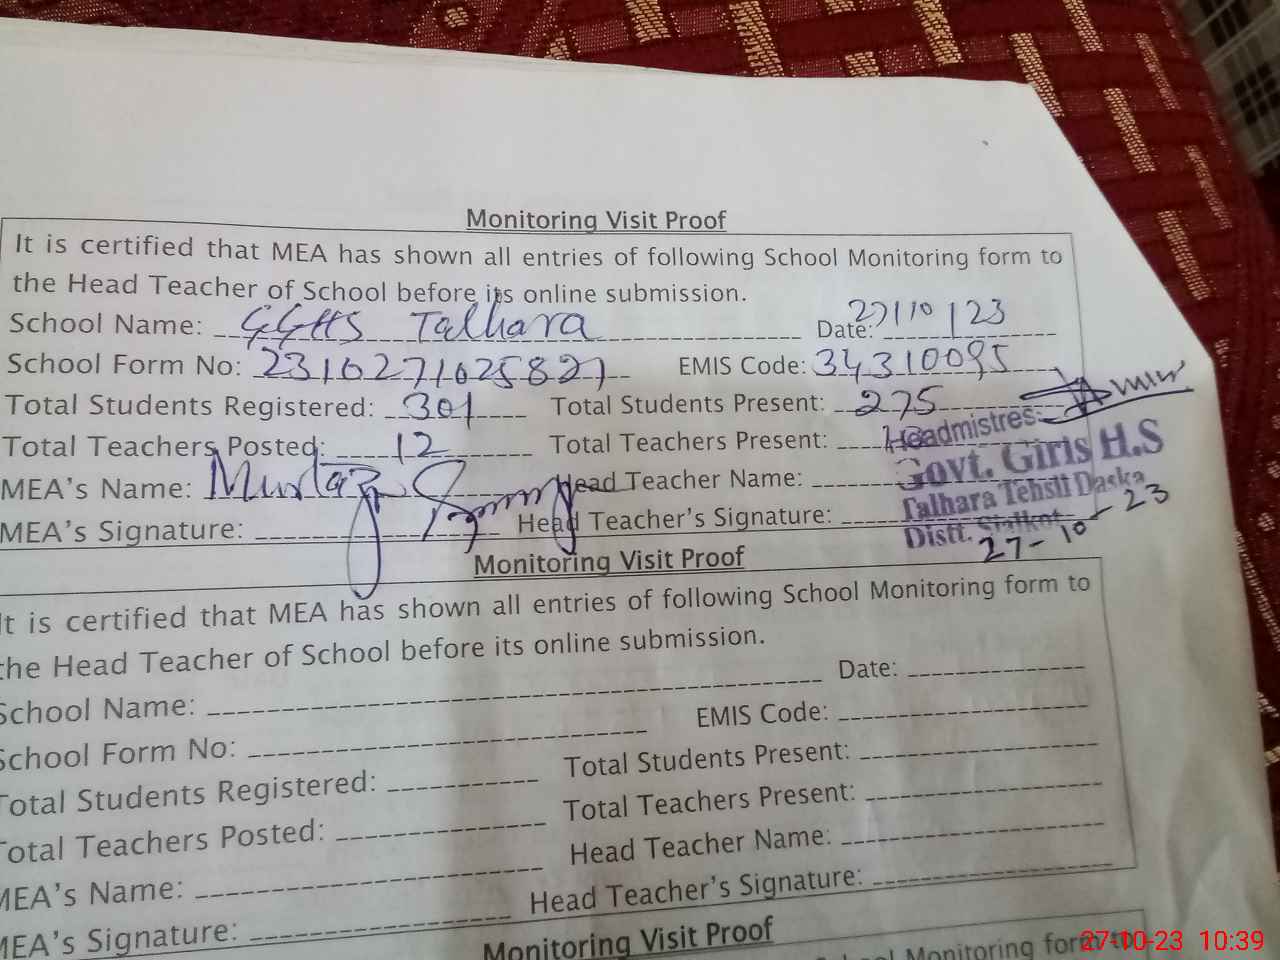 Monitoring Visit Proof
It is certified that MEA has shown all entries of following School Monitoring form to
the Head Teacher of School before its online submission.
School Name: GGHS Talhara Date: 27/10/23
School Form No: 2310271025827 EMIS Code: 34310095
Total Students Registered: 301 Total Students Present: 275
Total Teachers Posted: 12 Total Teachers Present:
MEA's Name: Murtaza Head Teacher Name:
MEA's Signature: Head Teacher's Signature:
Headmistres:
Govt. Girls H.S
Talhara Tehsil Daska
Distt. Sialkot
27-10-23
Monitoring Visit Proof
It is certified that MEA has shown all entries of following School Monitoring form to
the Head Teacher of School before its online submission.
School Name: Date:
School Form No: EMIS Code:
Total Students Registered: Total Students Present:
Total Teachers Posted: Total Teachers Present:
MEA's Name: Head Teacher Name:
MEA's Signature: Head Teacher's Signature:
Monitoring Visit Proof
School Monitoring form to
27-10-23 10:39